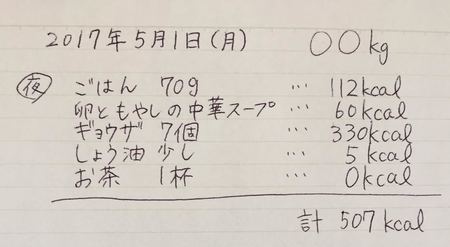 2017年5月1日(月) ○○kg
夜 ごはん 70g … 112kcal
卵ともやしの中華スープ … 60kcal
ギョウザ 7個 … 330kcal
しょう油 少し … 5kcal
お茶 1杯 … 0kcal
計 507kcal